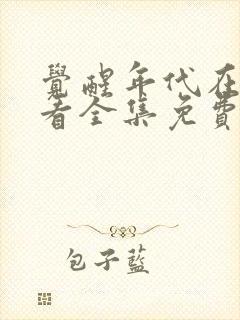 覺醒年代在
看全集免費
包子藍